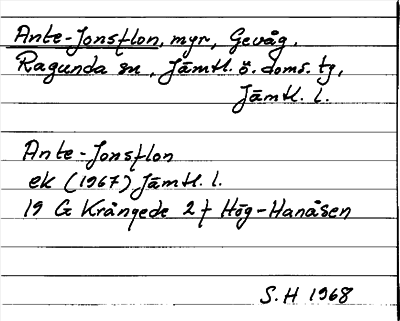 Ante-Jonsflon, myr, Gevåg.
Ragunda sn, Jämtl. ö. doms. tg,
Jämtl. l.
Ante-Jonsflon
ek (1967) Jämtl. l.
19 G Krångede 2 f Hög-Hanåsen
S.H 1968